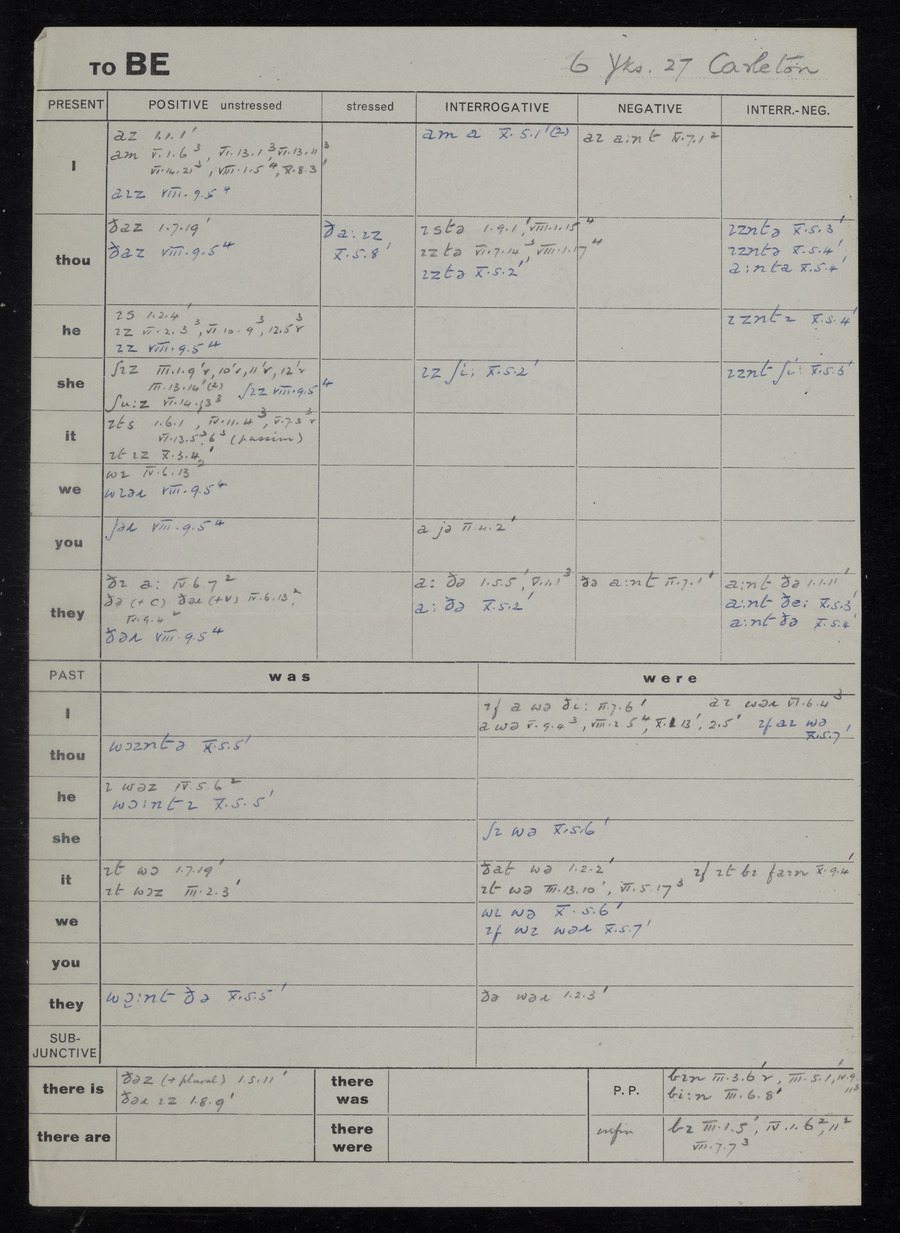 TO BE
6 Yks. 27 Carleton
PRESENT POSITIVE unstressed stressed INTERROGATIVE NEGATIVE INTERR.-NEG.
I
az I.1.1¹
am V.1.6³, VI.13.1³, VI.13.11³
VI.14.21³, VIII.1.5⁴, X.8.3¹
aɪz VIII.9.5⁴
am a X.5.1¹(2)
aɪ a:nt IV.7.1²
thou
ðaz I.7.19¹
ðaz VIII.9.5⁴
ða: ɪz
X.5.8¹
ɪstə I.9.1¹, VIII.1.15⁴
ɪztə VI.7.14³, VIII.1.17⁴
ɪztə X.5.2¹
ɪzntə X.5.3¹
ɪzntə X.5.4¹,
a:nta X.5.4¹
he
ɪs I.2.4¹
ɪz VI.2.3³, VI.10.9³, 12.5³r
ɪz VIII.9.5⁴
ɪzntɪ X.5.4¹
she
ʃɪz III.1.9¹r, 10¹r, 11¹r, 12¹r
III.13.14¹(2) ʃɪz VIII.9.5⁴
ʃu:z VI.14.13³
ɪz ʃi: X.5.2¹
ɪznt ʃi: X.5.3¹
it
ɪts I.6.1¹, IV.11.4³, V.7.3³r
VI.13.5³, 6³ (passim)
ɪt ɪz X.3.4¹
we
wɪ IV.6.13²
wɪəɹ VIII.9.5⁴
you
jəɹ VIII.9.5⁴
a jə II.4.2¹
they
ðɪ a: IV.6.7²
ðə (+C) ðəɹ (+V) IV.6.13²,
IV.9.4²
ðəɹ VIII.9.5⁴
a: ðə I.5.5¹, V.1.1³
a: ðə X.5.2¹
ðə a:nt II.7.1¹
a:nt ðə I.1.11¹
a:nt ðe: X.5.3¹
a:nt ðə X.5.4¹
PAST was were
I
ɪf a wə ði: II.7.6¹ aɪ wəɹ VI.6.4³
a wə V.9.4³, VIII.2.5⁴, X.1.13¹, 2.5¹ ɪf aɪ wə
X.5.7¹
thou
wɔzntə X.5.5¹
he
ɪ wəz IV.5.6²
wɔ:ntɪ X.5.5¹
she
ʃɪ wə X.5.6¹
it
ɪt wɔ I.7.19¹
ɪt wɔz III.2.3¹
ðat wə I.2.2¹ ɪf ɪt bɪ faɪn X.9.4¹
ɪt wə III.13.10¹, VI.5.17³
we
wɪ wə X.5.6¹
ɪf wɪ wəɹ X.5.7¹
you
they
wɔ:nt ðə X.5.5¹
ðə wəɹ I.2.3¹
SUB-
JUNCTIVE
there is
ðəz (+plural) I.5.11¹
ðəɹ ɪz I.8.9¹
there
was
P.P.
bɪn III.3.6¹r, III.5.1¹, IV.9.11³
bi:n III.6.8¹
there are
there
were
infin
bɪ III.1.5¹, IV.1.6², 11²
VII.7.7³